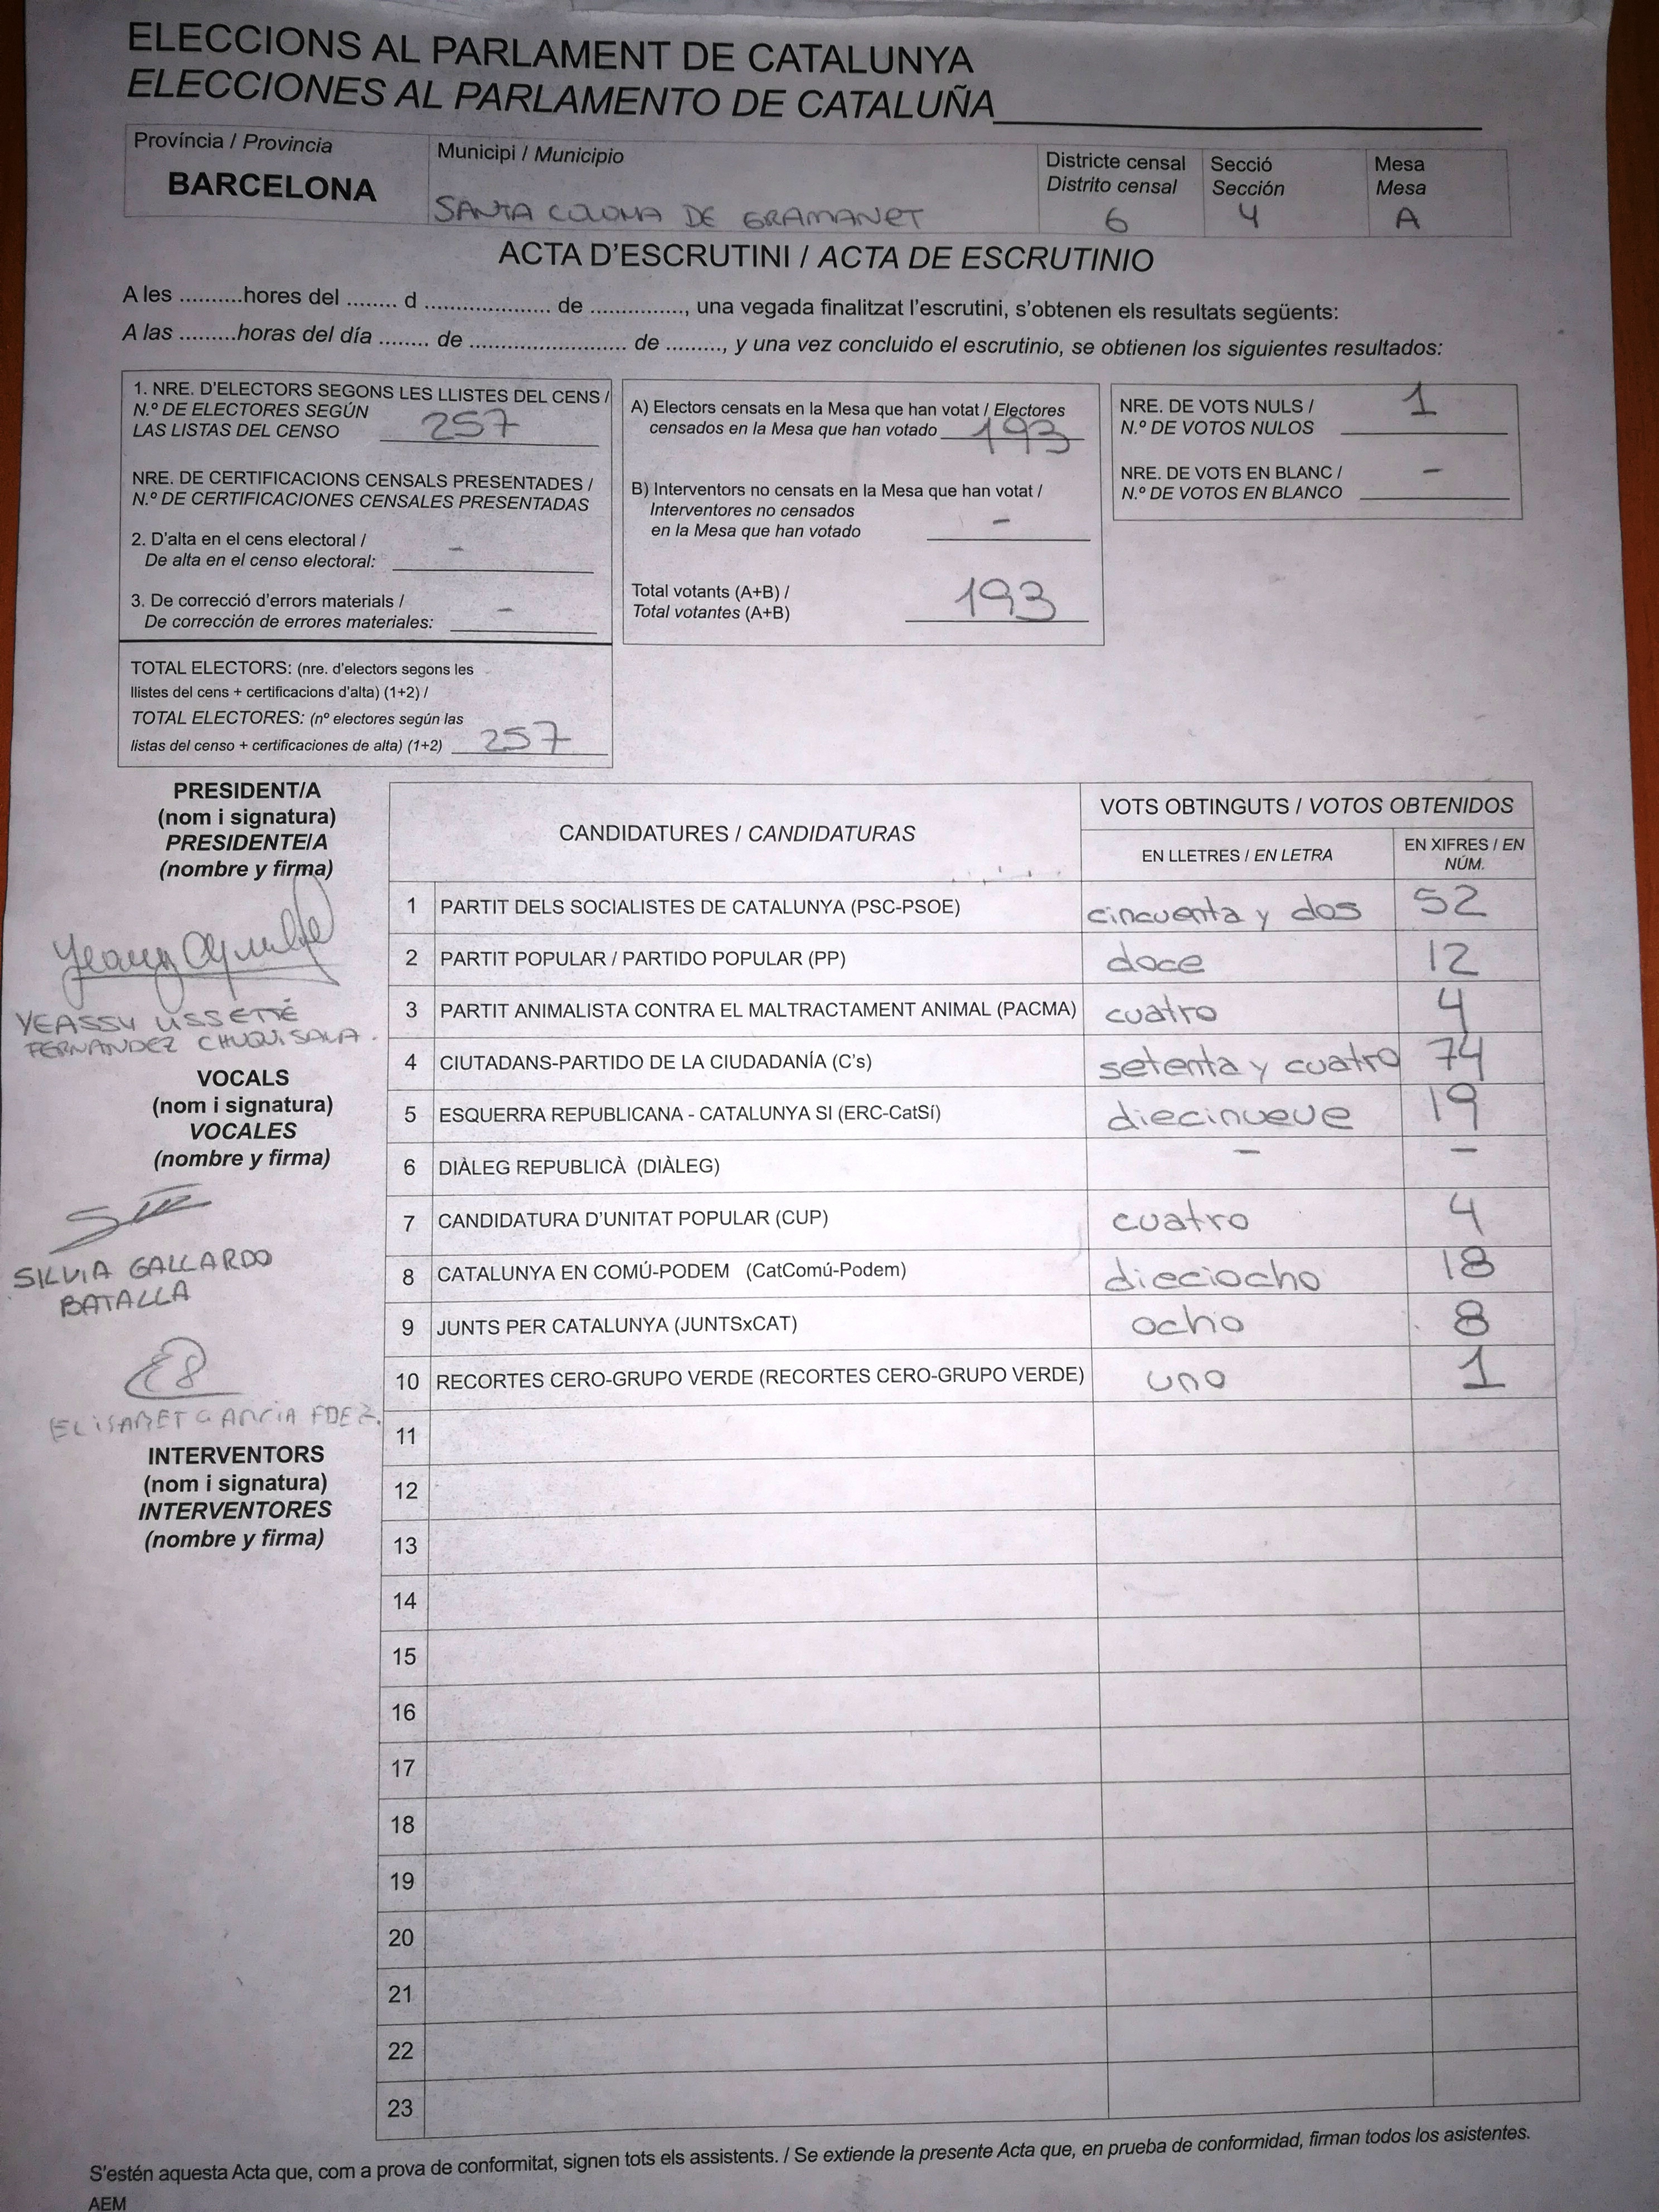 ELECCIONS AL PARLAMENT DE CATALUNYA
ELECCIONES AL PARLAMENTO DE CATALUÑA
Província / Provincia
BARCELONA
Municipi / Municipio
SANTA COLOMA DE GRAMANET
Districte censal
Distrito censal
6
Secció
Sección
4
Mesa
Mesa
A
ACTA D'ESCRUTINI / ACTA DE ESCRUTINIO
A les ..........hores del ........ d ..................... de ..............., una vegada finalitzat l'escrutini, s'obtenen els resultats següents:
A las .........horas del día ........ de .......................... de ........., y una vez concluido el escrutinio, se obtienen los siguientes resultados:
1. NRE. D'ELECTORS SEGONS LES LLISTES DEL CENS /
N.º DE ELECTORES SEGÚN
LAS LISTAS DEL CENSO 257
NRE. DE CERTIFICACIONS CENSALS PRESENTADES /
N.º DE CERTIFICACIONES CENSALES PRESENTADAS
2. D'alta en el cens electoral /
De alta en el censo electoral: -
3. De correcció d'errors materials /
De corrección de errores materiales: -
TOTAL ELECTORS: (nre. d'electors segons les
llistes del cens + certificacions d'alta) (1+2) /
TOTAL ELECTORES: (nº electores según las
listas del censo + certificaciones de alta) (1+2) 257
A) Electors censats en la Mesa que han votat / Electores
censados en la Mesa que han votado 193
B) Interventors no censats en la Mesa que han votat /
Interventores no censados
en la Mesa que han votado -
Total votants (A+B) /
Total votantes (A+B) 193
NRE. DE VOTS NULS /
N.º DE VOTOS NULOS 1
NRE. DE VOTS EN BLANC /
N.º DE VOTOS EN BLANCO -
PRESIDENT/A
(nom i signatura)
PRESIDENTE/A
(nombre y firma)
YEASSY LISSETTÉ
FERNANDEZ CHUQISALA.
VOCALS
(nom i signatura)
VOCALES
(nombre y firma)
SILVIA GALLARDO
BATALLA
ELISABET GARCIA FDEZ.
INTERVENTORS
(nom i signatura)
INTERVENTORES
(nombre y firma)
CANDIDATURES / CANDIDATURAS
VOTS OBTINGUTS / VOTOS OBTENIDOS
EN LLETRES / EN LETRA
EN XIFRES / EN
NÚM.
1 PARTIT DELS SOCIALISTES DE CATALUNYA (PSC-PSOE) cincuenta y dos 52
2 PARTIT POPULAR / PARTIDO POPULAR (PP) doce 12
3 PARTIT ANIMALISTA CONTRA EL MALTRACTAMENT ANIMAL (PACMA) cuatro 4
4 CIUTADANS-PARTIDO DE LA CIUDADANÍA (C's) setenta y cuatro 74
5 ESQUERRA REPUBLICANA - CATALUNYA SI (ERC-CatSí) diecinueve 19
6 DIÀLEG REPUBLICÀ (DIÀLEG) - -
7 CANDIDATURA D'UNITAT POPULAR (CUP) cuatro 4
8 CATALUNYA EN COMÚ-PODEM (CatComú-Podem) dieciocho 18
9 JUNTS PER CATALUNYA (JUNTSxCAT) ocho 8
10 RECORTES CERO-GRUPO VERDE (RECORTES CERO-GRUPO VERDE) uno 1
11
12
13
14
15
16
17
18
19
20
21
22
23
S'estén aquesta Acta que, com a prova de conformitat, signen tots els assistents. / Se extiende la presente Acta que, en prueba de conformidad, firman todos los asistentes.
AEM